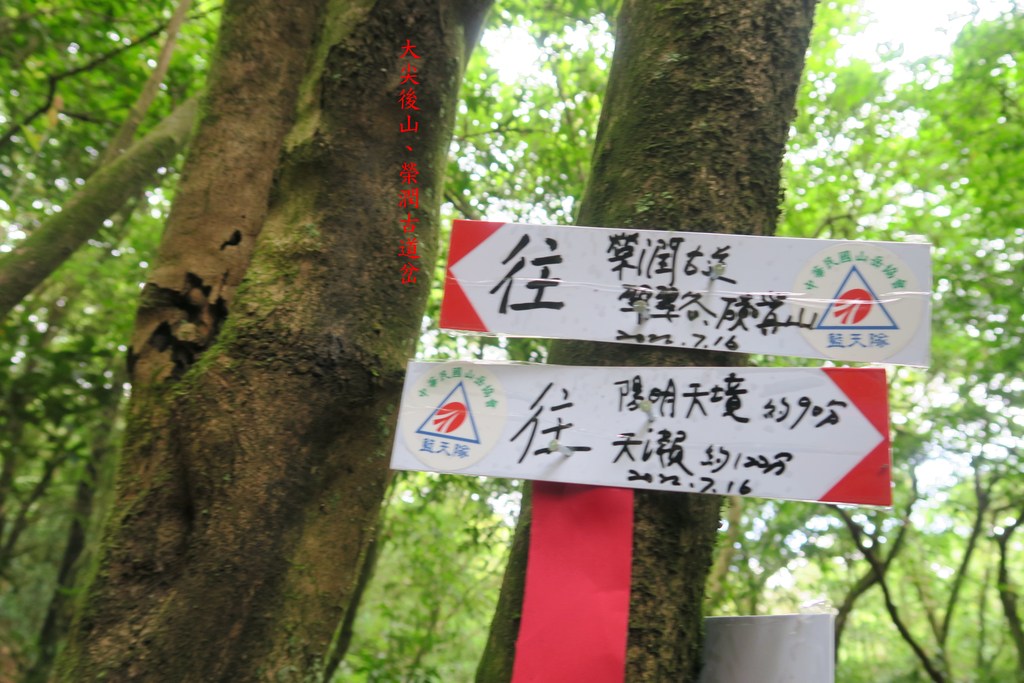 大尖後山、榮潤古道岔
往
榮潤古道
翠翠谷 磺嘴山
2022.7.16
中華民國山岳協會
藍天隊
中華民國山岳協會
藍天隊
往
陽明天境 約90分
天瀨 約120分
2022.7.16